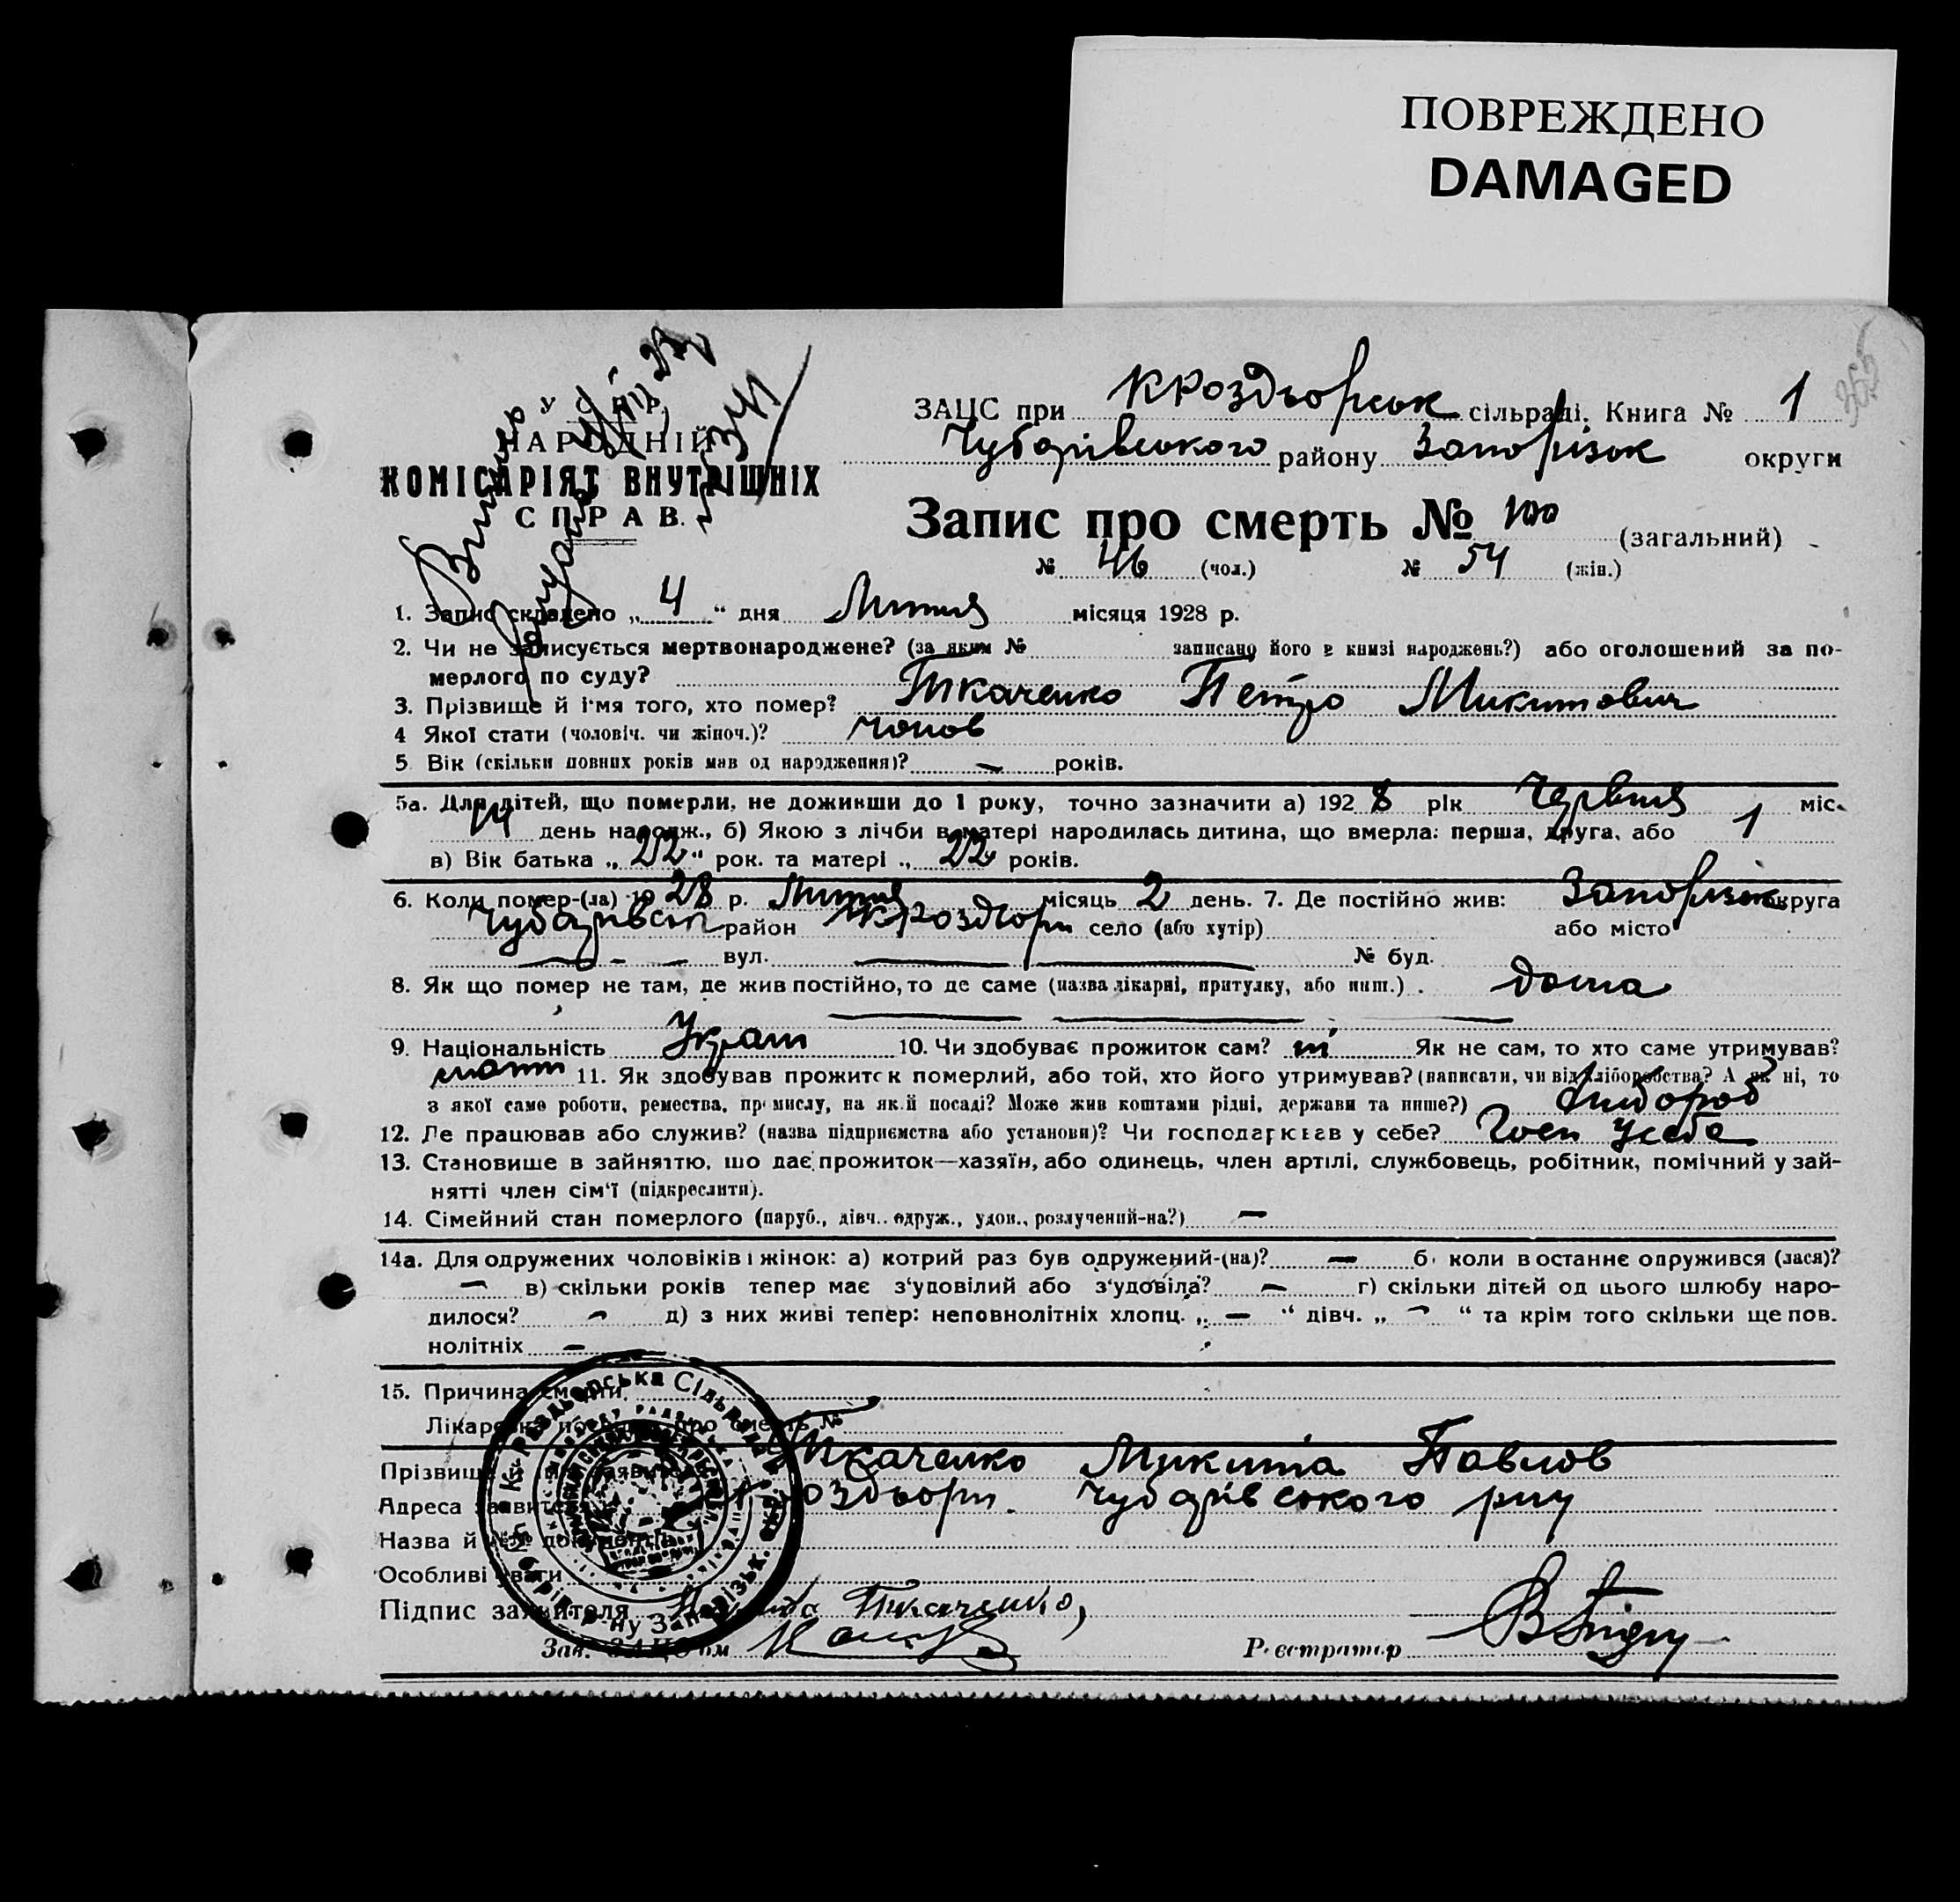 ПОВРЕЖДЕНО
DAMAGED
365
У С Р Р
НАРОДНІЙ
КОМІСАРІЯТ ВНУТРІШНІХ
СПРАВ.
ЗАЦС при К Роздьорськ сільраді. Книга № 1
Чубарівського району Запорізьк округи
Запис про смерть № 100 (загальний)
№ 46 (чол.) № 54 (жін.)
1. Запис складено „ 4 “ дня Липня місяця 1928 р.
2. Чи не записується мертвонароджене? (за яким № записано його в книзі народжень?) або оголошений за по-
мерлого по суду?
3. Прізвище й ім'я того, хто помер? Ткаченко Петро Микитович
4 Якої стати (чоловіч. чи жіноч.)? чолов
5 Вік (скільки повних років мав од народження)? — років.
5а. Для дітей, що померли, не доживши до 1 року, точно зазначити а) 192 8 рік Червня міс.
14 день народж., б) Якою з лічби в матері народилась дитина, що вмерла: перша, друга, або 1
в) Вік батька „ 22 “ рок. та матері „ 22 років.
6. Коли помер-(ла) 19 28 р. Липня місяць 2 день. 7. Де постійно жив: Запорізьк округа
Чубарівськ район К Роздьори село (або хутір) або місто
— - — вул. — — № буд.
8. Як що помер не там, де жив постійно, то де саме (назва лікарні, притулку, або инш.) . дома
9. Національність Украін 10. Чи здобуває прожиток сам? ні Як не сам, то хто саме утримував?
11. Як здобував прожиток померлий, або той, хто його утримував? (написати, чи від хліборобства? А як ні, то
з якої саме роботи, ремества, промислу, на якій посаді? Може жив коштами рідні, держави та инше?) Хлібороб
12. Де працював або служив? (назва підприємства або установи)? Чи господарював у себе? Госп усебе
13. Становище в зайняттю, що дає прожиток—хазяїн, або одинець, член артілі, службовець, робітник, помічний у зай-
нятті член сім'ї (підкреслити).
14. Сімейний стан померлого (паруб., дівч.. одруж., удов., розлучений-на?) —
14а. Для одружених чоловіків і жінок: а) котрий раз був одружений-(на)? — б) коли в останнє одружився (лася)?
— в) скільки років тепер має з'удовілий або з'удовіла? — г) скільки дітей од цього шлюбу наро-
дилося? — д) з них живі тепер: неповнолітніх хлопц. „ — “ дівч. „ — “ та крім того скільки ще пов.
нолітніх —
15. Причина смерти
Лікарська посвідка про смерть №
Прізвище й ім'я заявителя Ткаченко Микита Павлов
Адреса заявителя К Роздьори. Чубарівського рну
Назва й №№ документів
Особливі уваги
Підпис заявителя Ткаченко,
Зав. ЗАЦС'ом
Реєстратор
К-Роздьорська Сільрада
Чубарів. р-ну Запорізьк. окр.